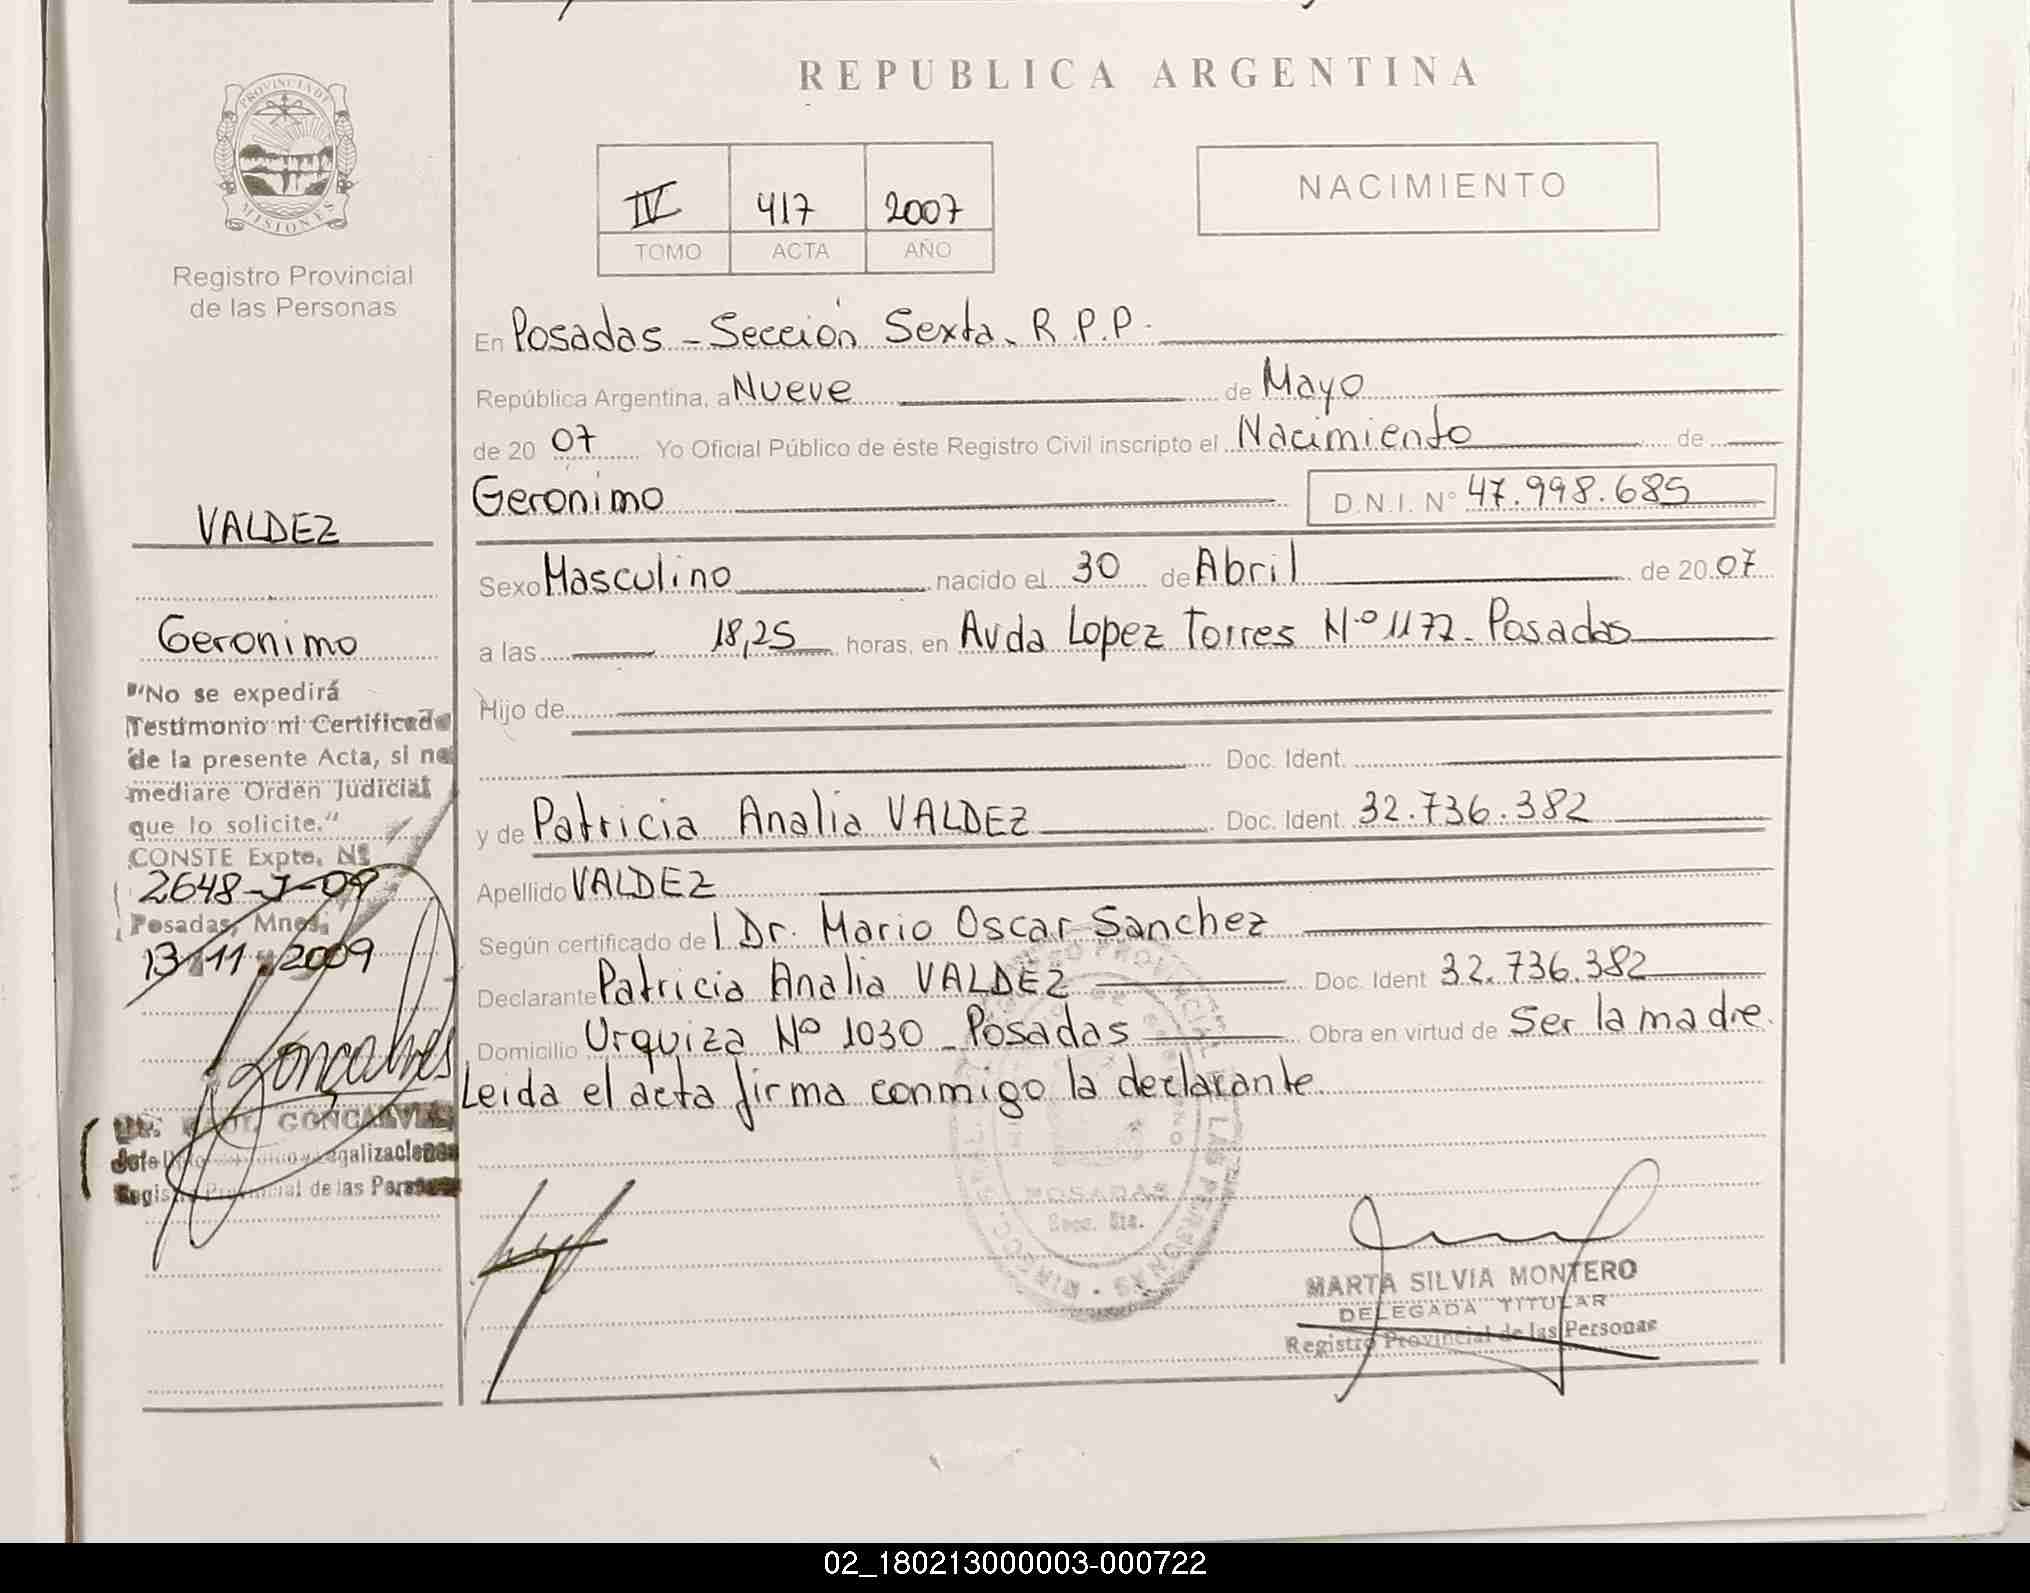 REPUBLICA ARGENTINA
PROVINCIA DE
MISIONES
Registro Provincial
de las Personas
IV 417 2007
TOMO ACTA AÑO
NACIMIENTO
En Posadas - Sección Sexta. R.P.P.
República Argentina, a Nueve de Mayo
de 20 07 Yo Oficial Público de éste Registro Civil inscripto el Nacimiento de
Geronimo D.N.I. N° 47.998.685
Sexo Masculino nacido el 30 de Abril de 20 07
a las 18,25 horas, en Avda Lopez Torres N° 1172 - Posadas
Hijo de
Doc. Ident.
y de Patricia Analia VALDEZ Doc. Ident. 32.736.382
Apellido VALDEZ
Según certificado de l Dr. Mario Oscar Sanchez
Declarante Patricia Analia VALDEZ Doc. Ident 32.736.382
Domicilio Urquiza Nº 1030 - Posadas Obra en virtud de Ser la madre.
Leida el acta firma conmigo la declarante.
VALDEZ
Geronimo
"No se expedirá
Testimonio ni Certificado
de la presente Acta, si no
mediare Orden Judicial
que lo solicite."
CONSTE Expte. Nº
2648-J-09
Posadas, Mnes.
13/11.2009
Goncalves
RAUL GONCALVES
Jefe Legalizaciones
Registro Provincial de las Personas
POSADAS
Secc. 6ta.
MARTA SILVIA MONTERO
DELEGADA TITULAR
Registro Provincial de las Personas
02_180213000003-000722